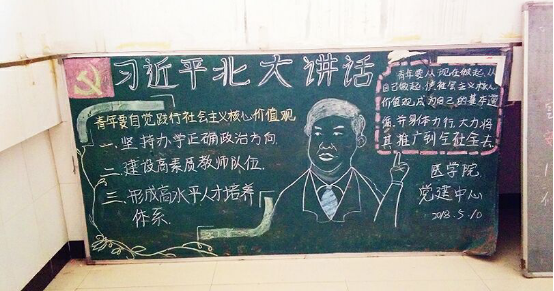 习近平北大讲话
青年要自觉践行社会主义核心价值观
一.坚持办学正确政治方向.
二.建设高素质教师队伍.
三.形成高水平人才培养
体系.
青年要从现在做起,从
自己做起,使社会主义核心
价值观成为自己的基本遵
循,并身体力行大力将
其推广到全社会去
医学院
党建中心
2018.5.10